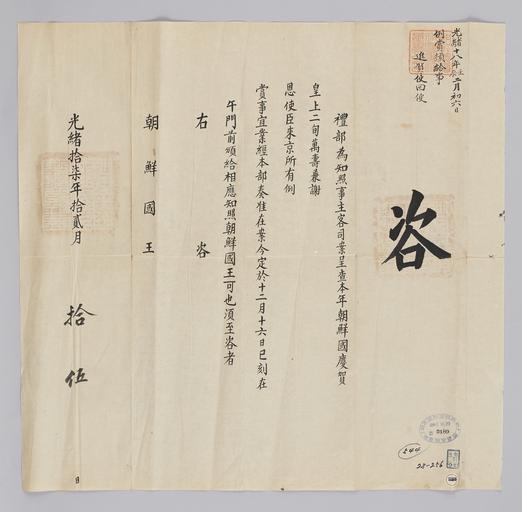 光緒十八年壬辰二月初六日
例賞頒給事
進賀使回便
咨
禮部為知照事主客司案呈查本年朝鮮國慶賀
皇上二旬萬壽兼謝
恩使臣來京所有例
賞事宜業經本部奏准在案今定於十二月十六日巳刻在
午門前頒給相應知照朝鮮國王可也須至咨者
右咨
朝鮮國王
光緒拾柒年拾貳月
拾伍
日
3189
544
28-256